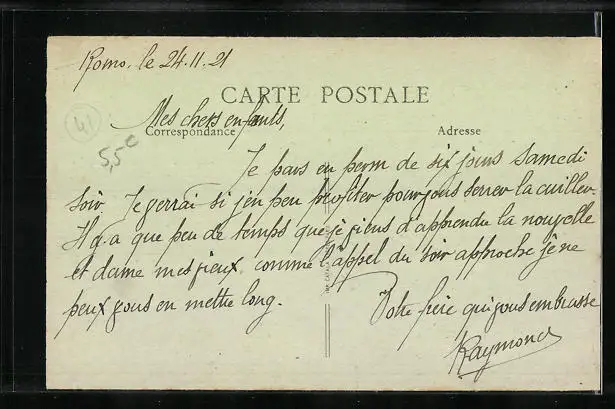 Romo. le 24.11.21
41
CARTE POSTALE
Mes chers enfants,
Correspondance
Adresse
5,5€
Je pars en perm de six jours samedi
soir. Je verrai si j'en peu profiter pour vous serrer la cuiller.
Il y a que peu de temps que je viens d'apprendre la nouvelle
et dame mes vieux comme l'appel du soir approche je ne
peux vous en mettre long.
Votre frère qui vous embrasse
Raymond